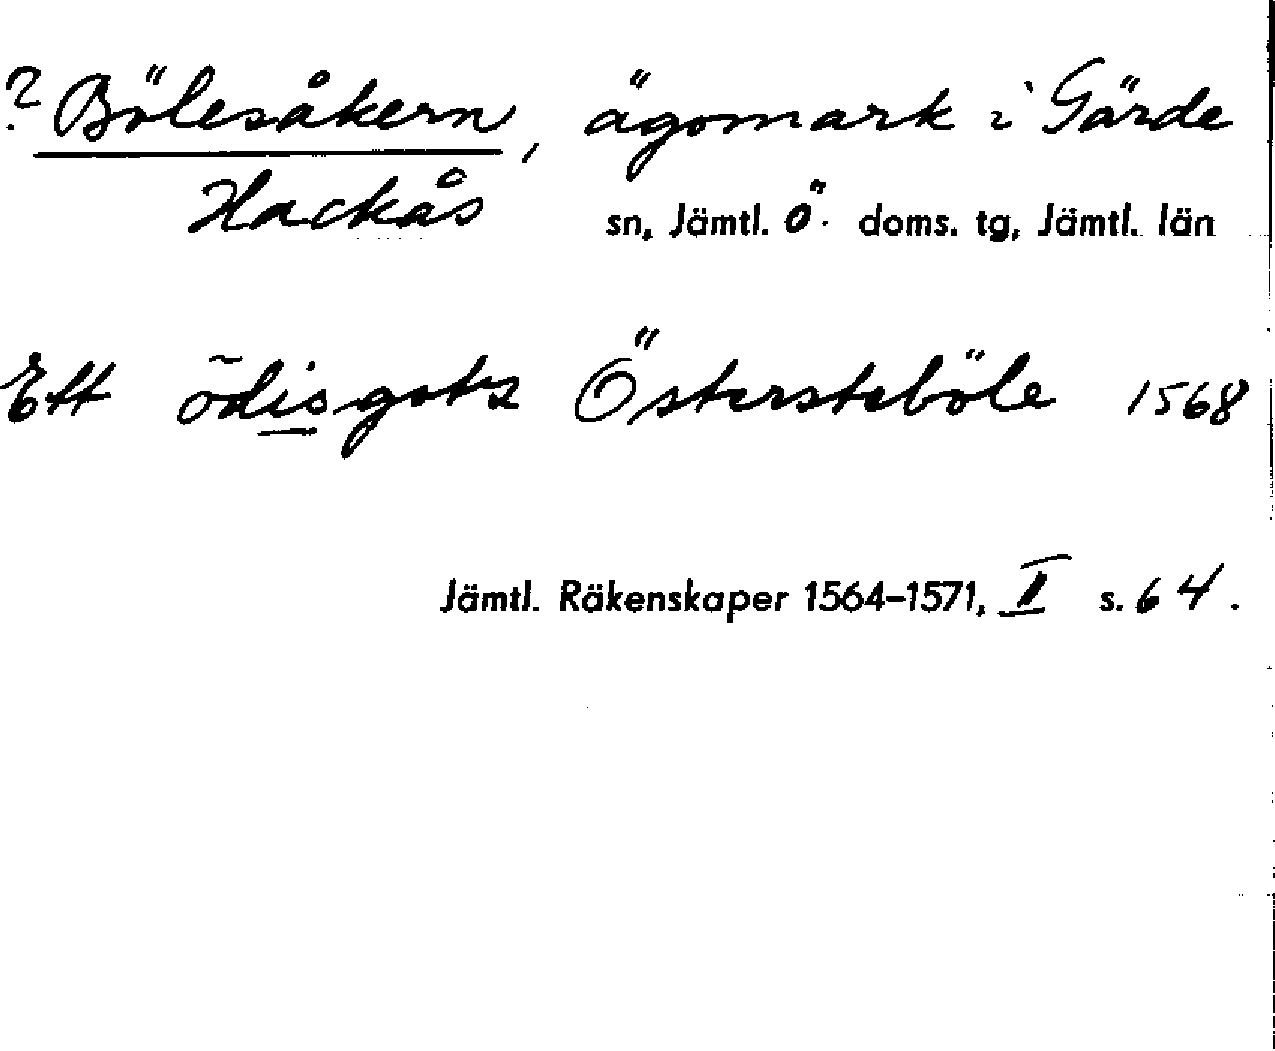 ? Bölesåkern, ägomark i Gärde
Hackås sn, Jämtl. Ö. doms. tg, Jämtl. län
Ett ödisgotz Östersteböle 1568
Jämtl. Räkenskaper 1564-1571, II s. 64.